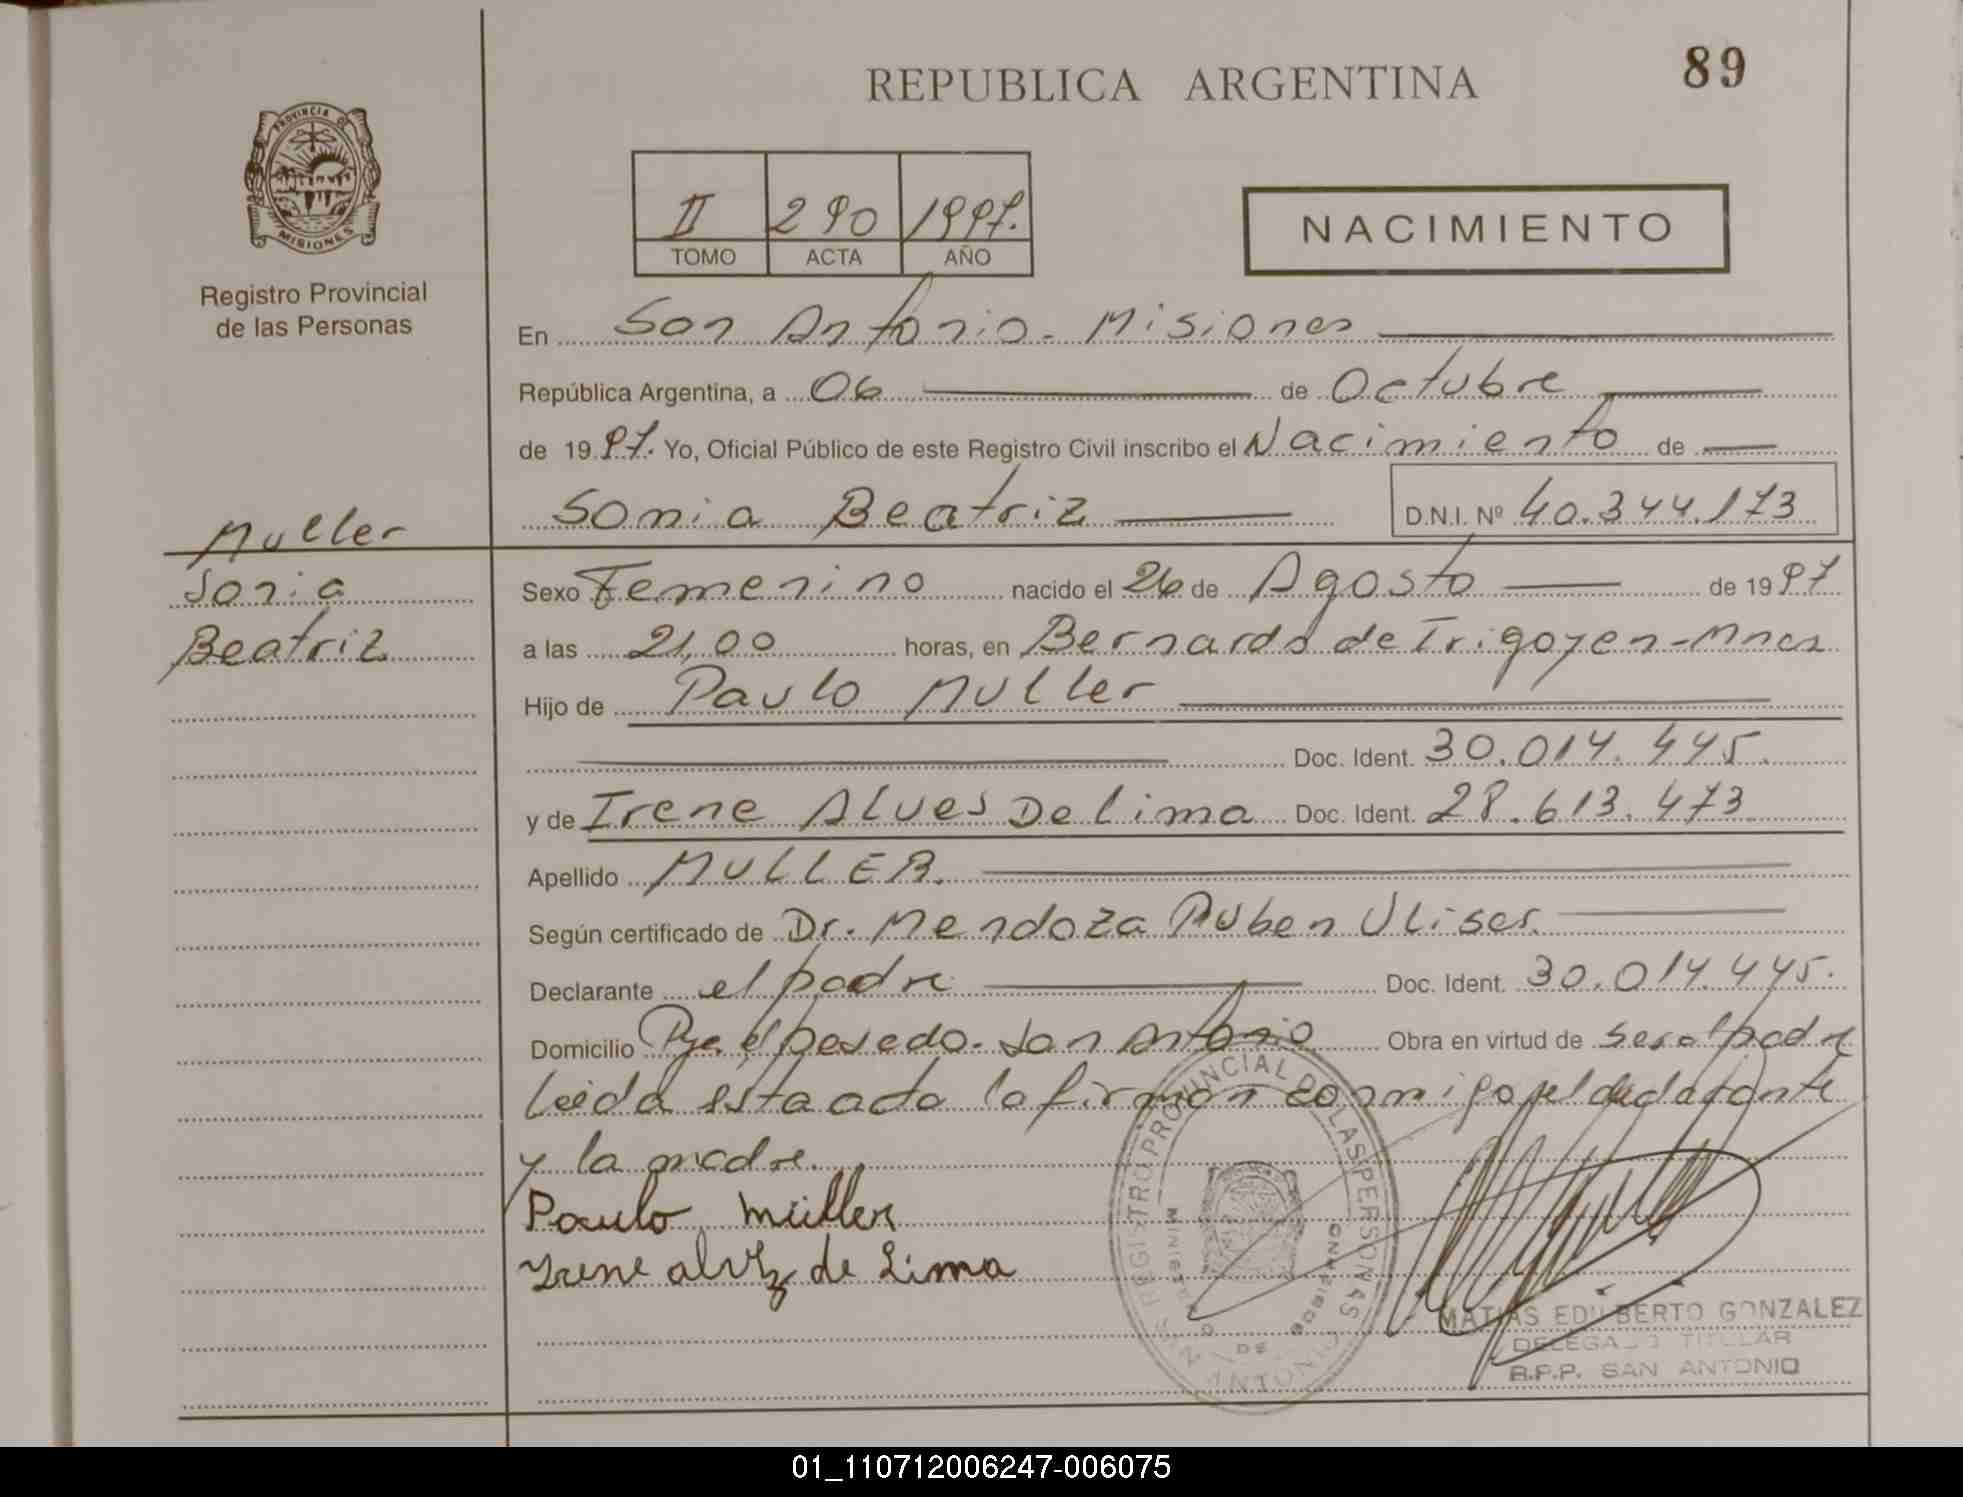 89
REPUBLICA ARGENTINA
PROVINCIA DE
MISIONES
Registro Provincial
de las Personas
II 290 1997.
TOMO ACTA AÑO
NACIMIENTO
En San Antonio - Misiones
República Argentina, a 06 de Octubre
de 19 97. Yo, Oficial Público de este Registro Civil inscribo el Nacimiento de
Sonia Beatriz D.N.I. Nº 40.344.173
Muller
Sonia
Beatriz
Sexo Femenino nacido el 26 de Agosto de 19 97
a las 21,00 horas, en Bernardo de Irigoyen - Mnes
Hijo de Paulo Muller
Doc. Ident. 30.014.445.
y de Irene Alves De lima Doc. Ident. 28.613.473
Apellido MULLER.
Según certificado de Dr. Mendoza Ruben Ulises.
Declarante el padre Doc. Ident. 30.014.445.
Domicilio Pje. el pesedo. San Antonio Obra en virtud de ser el padre
leida esta acta la firman conmigo el declarante
y la madre.
Paulo Müller
Irene alvez de Lima
REGISTRO PROVINCIAL DE LAS PERSONAS
MINISTERIO DE GOBIERNO
SAN ANTONIO
MATIAS EDILBERTO GONZALEZ
DELEGADO TITULAR
R.P.P. SAN ANTONIO
01_110712006247-006075